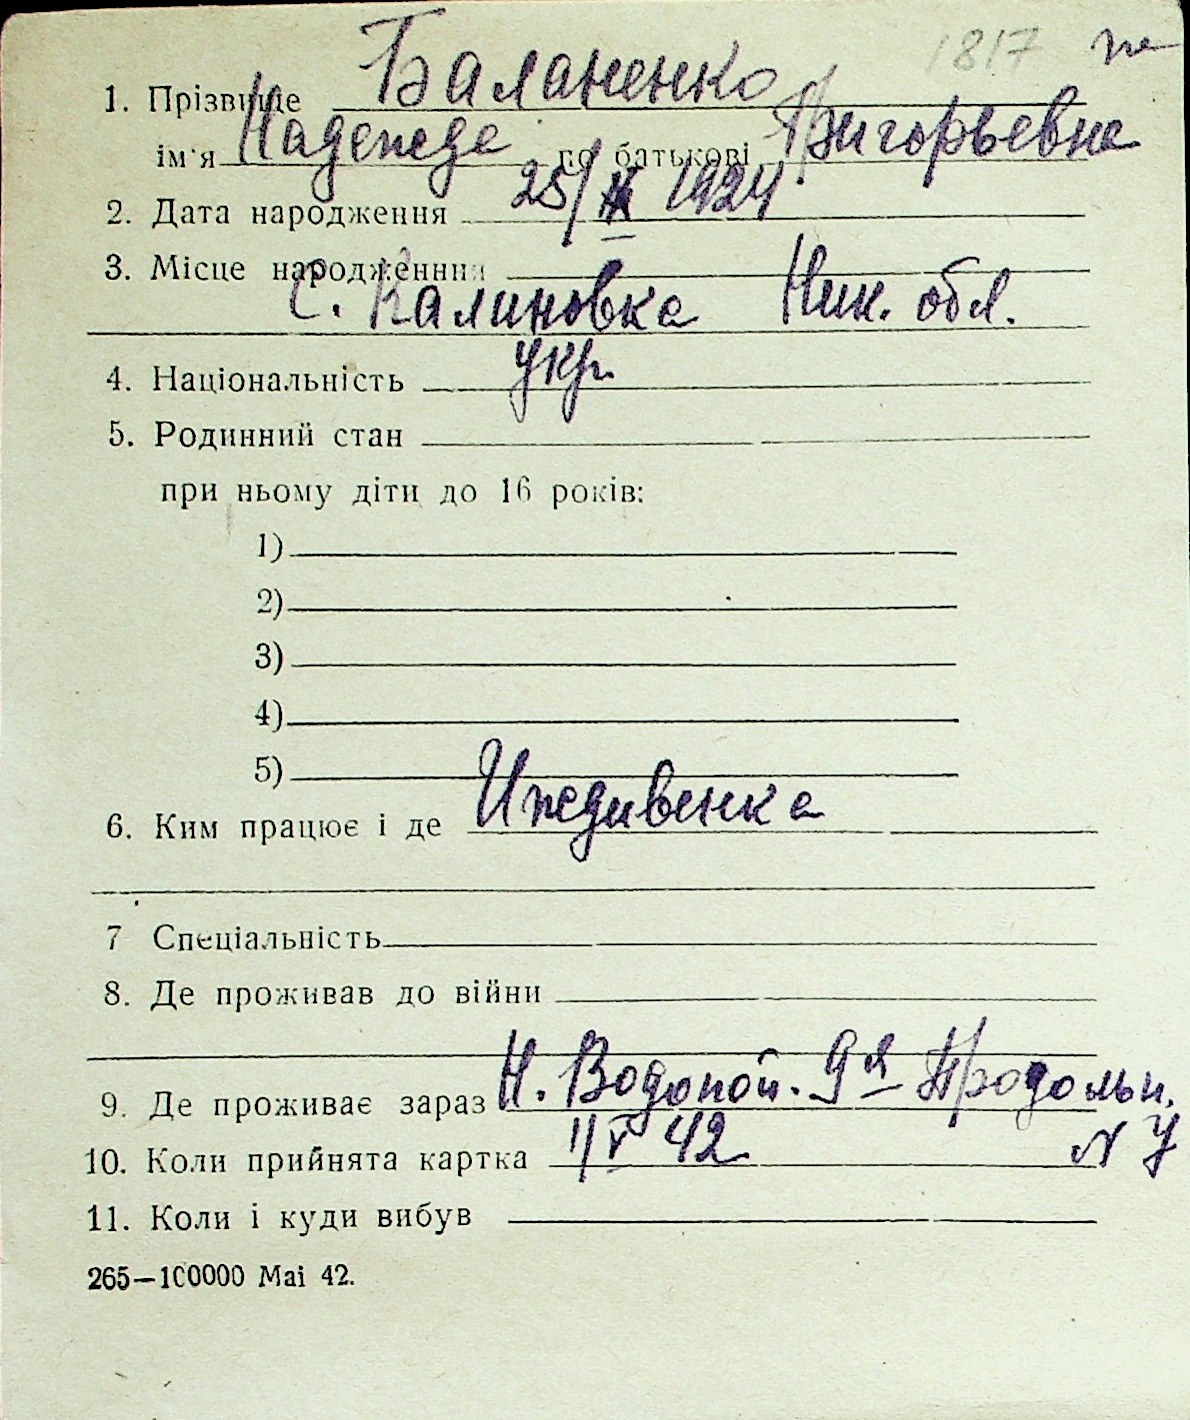 1817 же
1. Прізвище Баланенко
ім'я Надежда по батькові Григорьевна
2. Дата народження 25/ 1924
3. Місце народженния
с. Калиновка Ник. обл.
4. Національність укр.
5. Родинний стан
при ньому діти до 16 років:
1)
2)
3)
4)
5)
6. Ким працює і де Иждивенка
7 Спеціальність
8. Де проживав до війни
9. Де проживає зараз Н. Водопой. 9я Продольн.
10. Коли прийнята картка 1/V 42 N
11. Коли і куди вибув
265—100000 Mai 42.